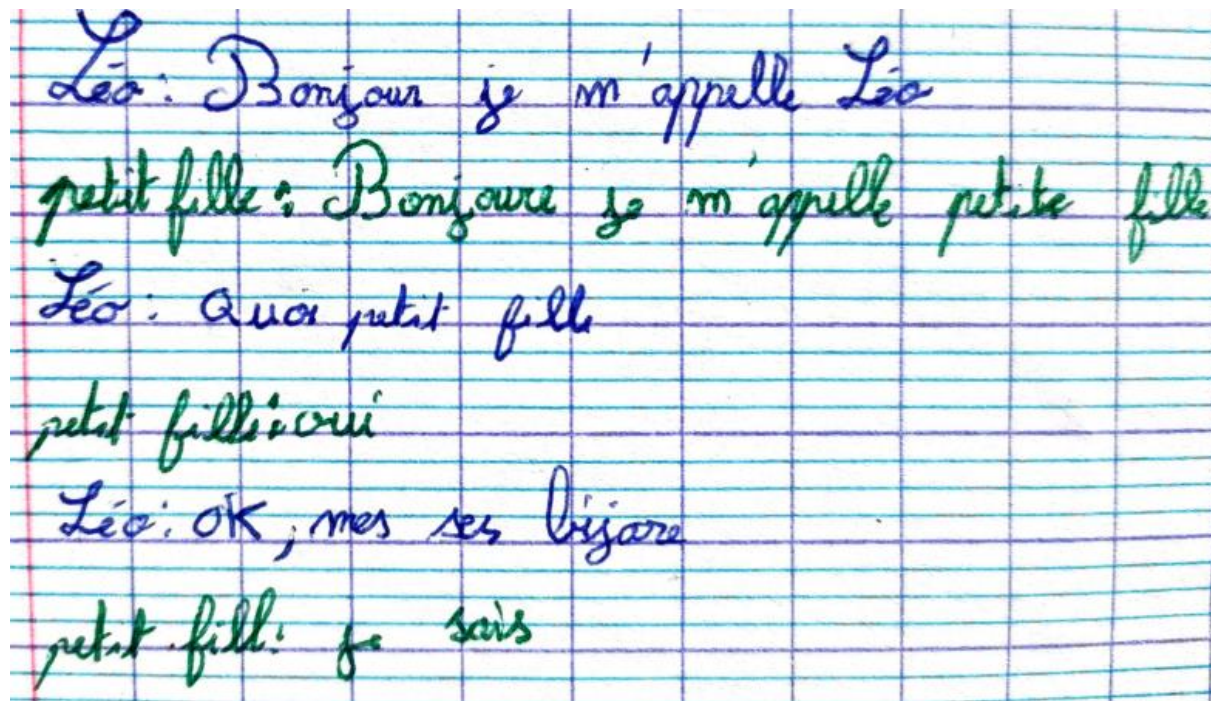 Léo: Bonjour je m'appelle Léo
petit fille: Bonjoure je m'appelle petite fille
Léo: Quoi petit fille
petit fille: oui
Léo: OK, mes ses bijare
petit fill: je sais